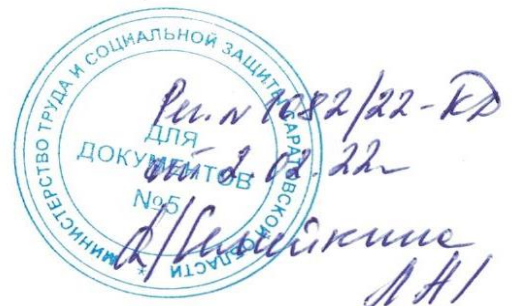 МИНИСТЕРСТВО ТРУДА И СОЦИАЛЬНОЙ ЗАЩИТЫ САРАТОВСКОЙ ОБЛАСТИ *
ДЛЯ
ДОКУМЕНТОВ
№5
Рег. N 1082/22-КД
от 2.02.22г